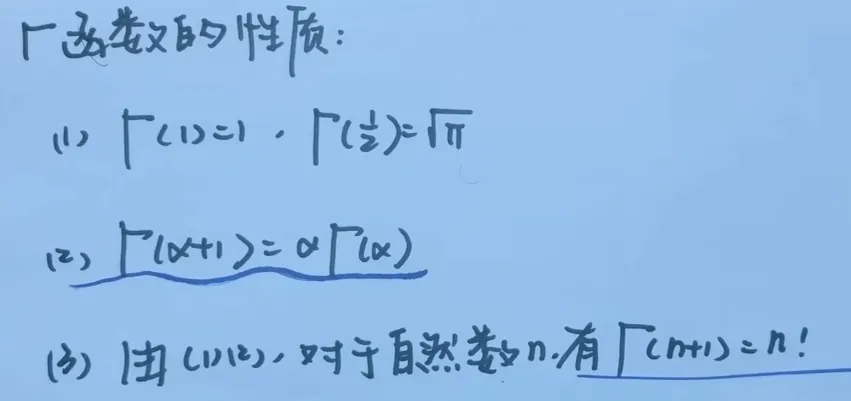 Γ函数的性质:
(1) Γ(1)=1, Γ(½)=√π
(2) Γ(α+1)=αΓ(α)
(3) 由(1)(2),对于自然数n,有Γ(n+1)=n!